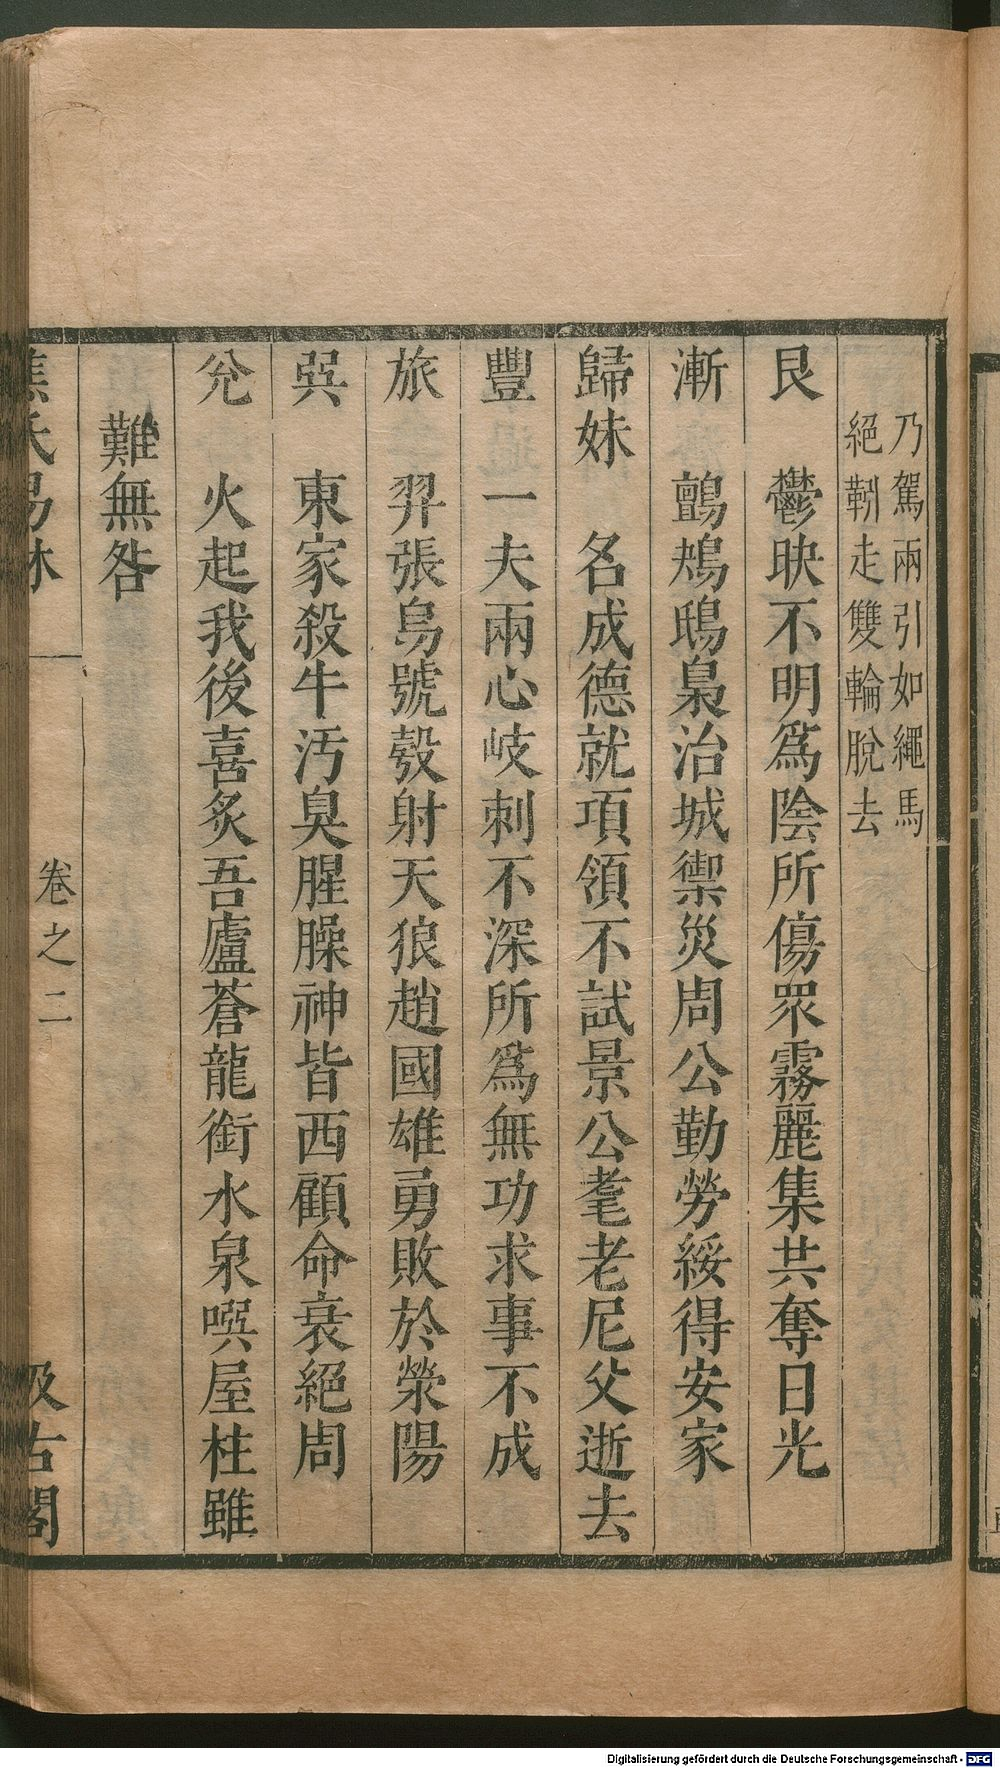 乃駕兩引如繩馬
絕靷走雙輪脫去
艮 鬱昳不明爲陰所傷眾霧麗集共奪日光
漸 鸇鴆鴟梟治城禦災周公勤勞綏得安家
歸妹 名成德就項領不試景公耄老尼父逝去
豐 一夫兩心岐刺不深所爲無功求事不成
旅 羿張烏號彀射天狼趙國雄勇敗於滎陽
巽 東家殺牛汚臭腥臊神皆西顧命衰絕周
兊 火起我後喜炙吾廬蒼龍銜水泉噀屋柱雖
難無咎
焦氏易林 卷之二 汲古閣
Digitalisierung gefördert durch die Deutsche Forschungsgemeinschaft - DFG